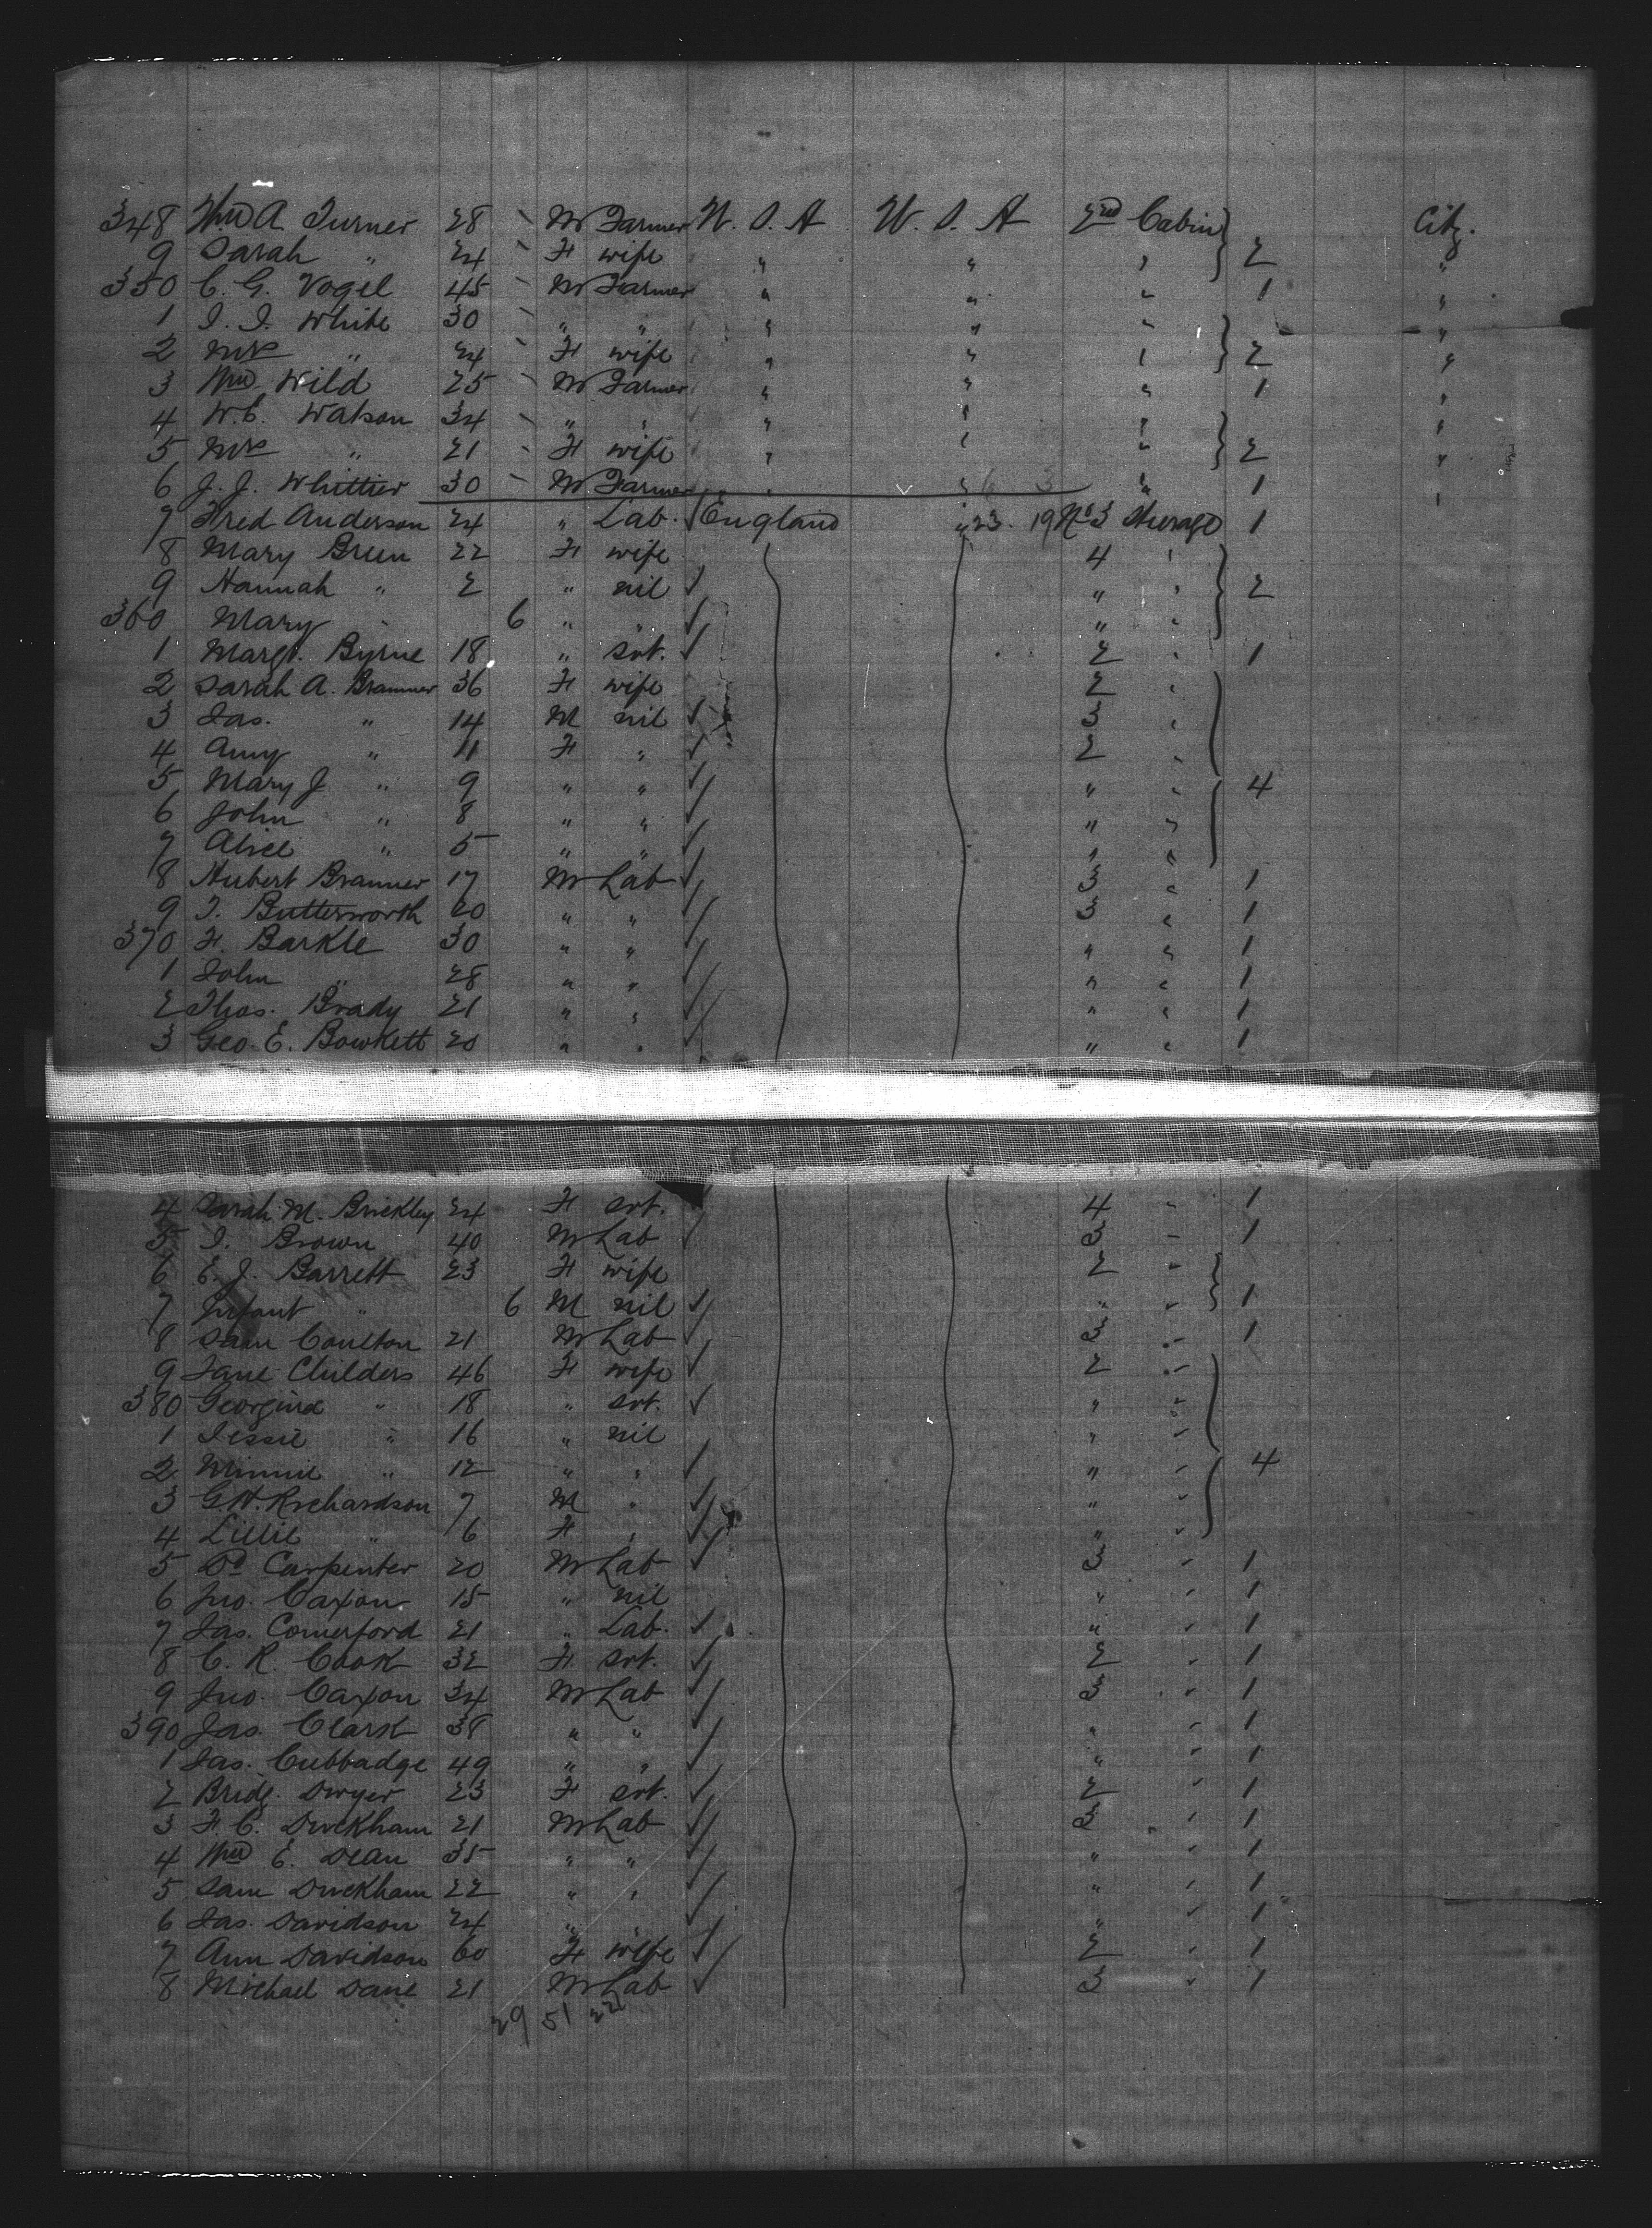 348 Wm A Turner 28 M Farmer U. S. A U. S. A 2nd Cabin Citz.
9 Sarah " 24 F wife " " " 2 "
350 C. G. Vogel 45 M Farmer " " " 1 "
1 J. J. White 30 " " " " " "
2 Mrs " 24 F wife " " " 2 "
3 Wm Wild 25 M Farmer " " " 1 "
4 W. C. Watson 34 " " " " " "
5 Mrs " 21 F wife " " " 2 "
6 J. J. Whittier 30 M Farmer " " 6 3 " 1 "
7 Fred Anderson 24 " Lab. England " 23 19 No 3 Steerage 1
8 Mary Breen 22 F wife 4 "
9 Hannah " 2 " nil " " 2
360 Mary " 6 " " " "
1 Margt. Byrne 18 " svt. 2 " 1
2 Sarah A. Brammer 36 F wife 2 "
3 Jas. " 14 M nil 3 "
4 Amy " 11 F " 2 "
5 Mary J " 9 " " " " 4
6 John " 8 " " " "
7 Alice " 5 " " " "
8 Hubert Brammer 17 M Lab 3 " 1
9 J. Butterworth 20 " " 3 " 1
370 F. Barkle 30 " " " " 1
1 John " 28 " " " " 1
2 Thos. Brady 21 " " " " 1
3 Geo. E. Bowkett 20 " " " " 1
4 Sarah M. Brickley 24 F svt. 4 " 1
5 J. Brown 40 M Lab 3 " 1
6 E. J. Barrett 23 F wife 2 "
7 Infant " 6 M nil " " 1
8 Sam Coulton 21 M Lab 3 " 1
9 Jane Childers 46 F wife 2 "
380 Georgina " 18 " svt. " "
1 Jessie " 16 " nil " "
2 Minnie " 12 " " " " 4
3 G. H. Richardson 7 M " " "
4 Lillie " 6 F " " "
5 Carpenter 20 M Lab 3 " 1
6 Jno. Caxon 15 " nil " " 1
7 Jas. Comerford 21 " Lab. " " 1
8 C. R. Cook 32 F svt. 2 " 1
9 Jno. Caxon 34 M Lab 3 " 1
390 Jas. Clark 38 " " " " 1
1 Jas. Cubbadge 49 " " " " 1
2 Bridg. Dwyer 23 F svt. 2 " 1
3 F. C. Duckham 21 M Lab 3 " 1
4 Wm E. Dean 35 " " " " 1
5 Sam Duckham 22 " " " " 1
6 Jas. Davidson 24 " " " " 1
7 Ann Davidson 60 F wife 2 " 1
8 Michael Dane 21 M Lab 3 " 1
29 51 22